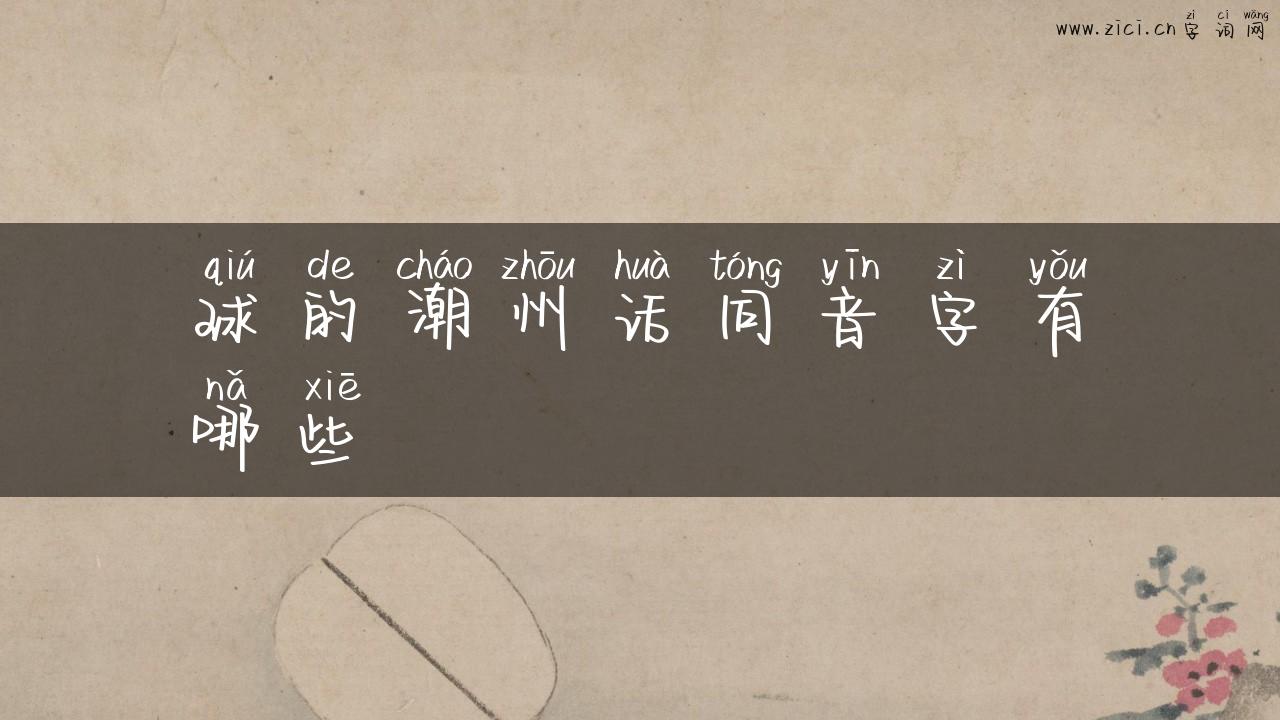 zì cí wǎng
www.zici.cn字词网
qiú de cháo zhōu huà tóng yīn zì yǒu
球的潮州话同音字有
nǎ xiē
哪些